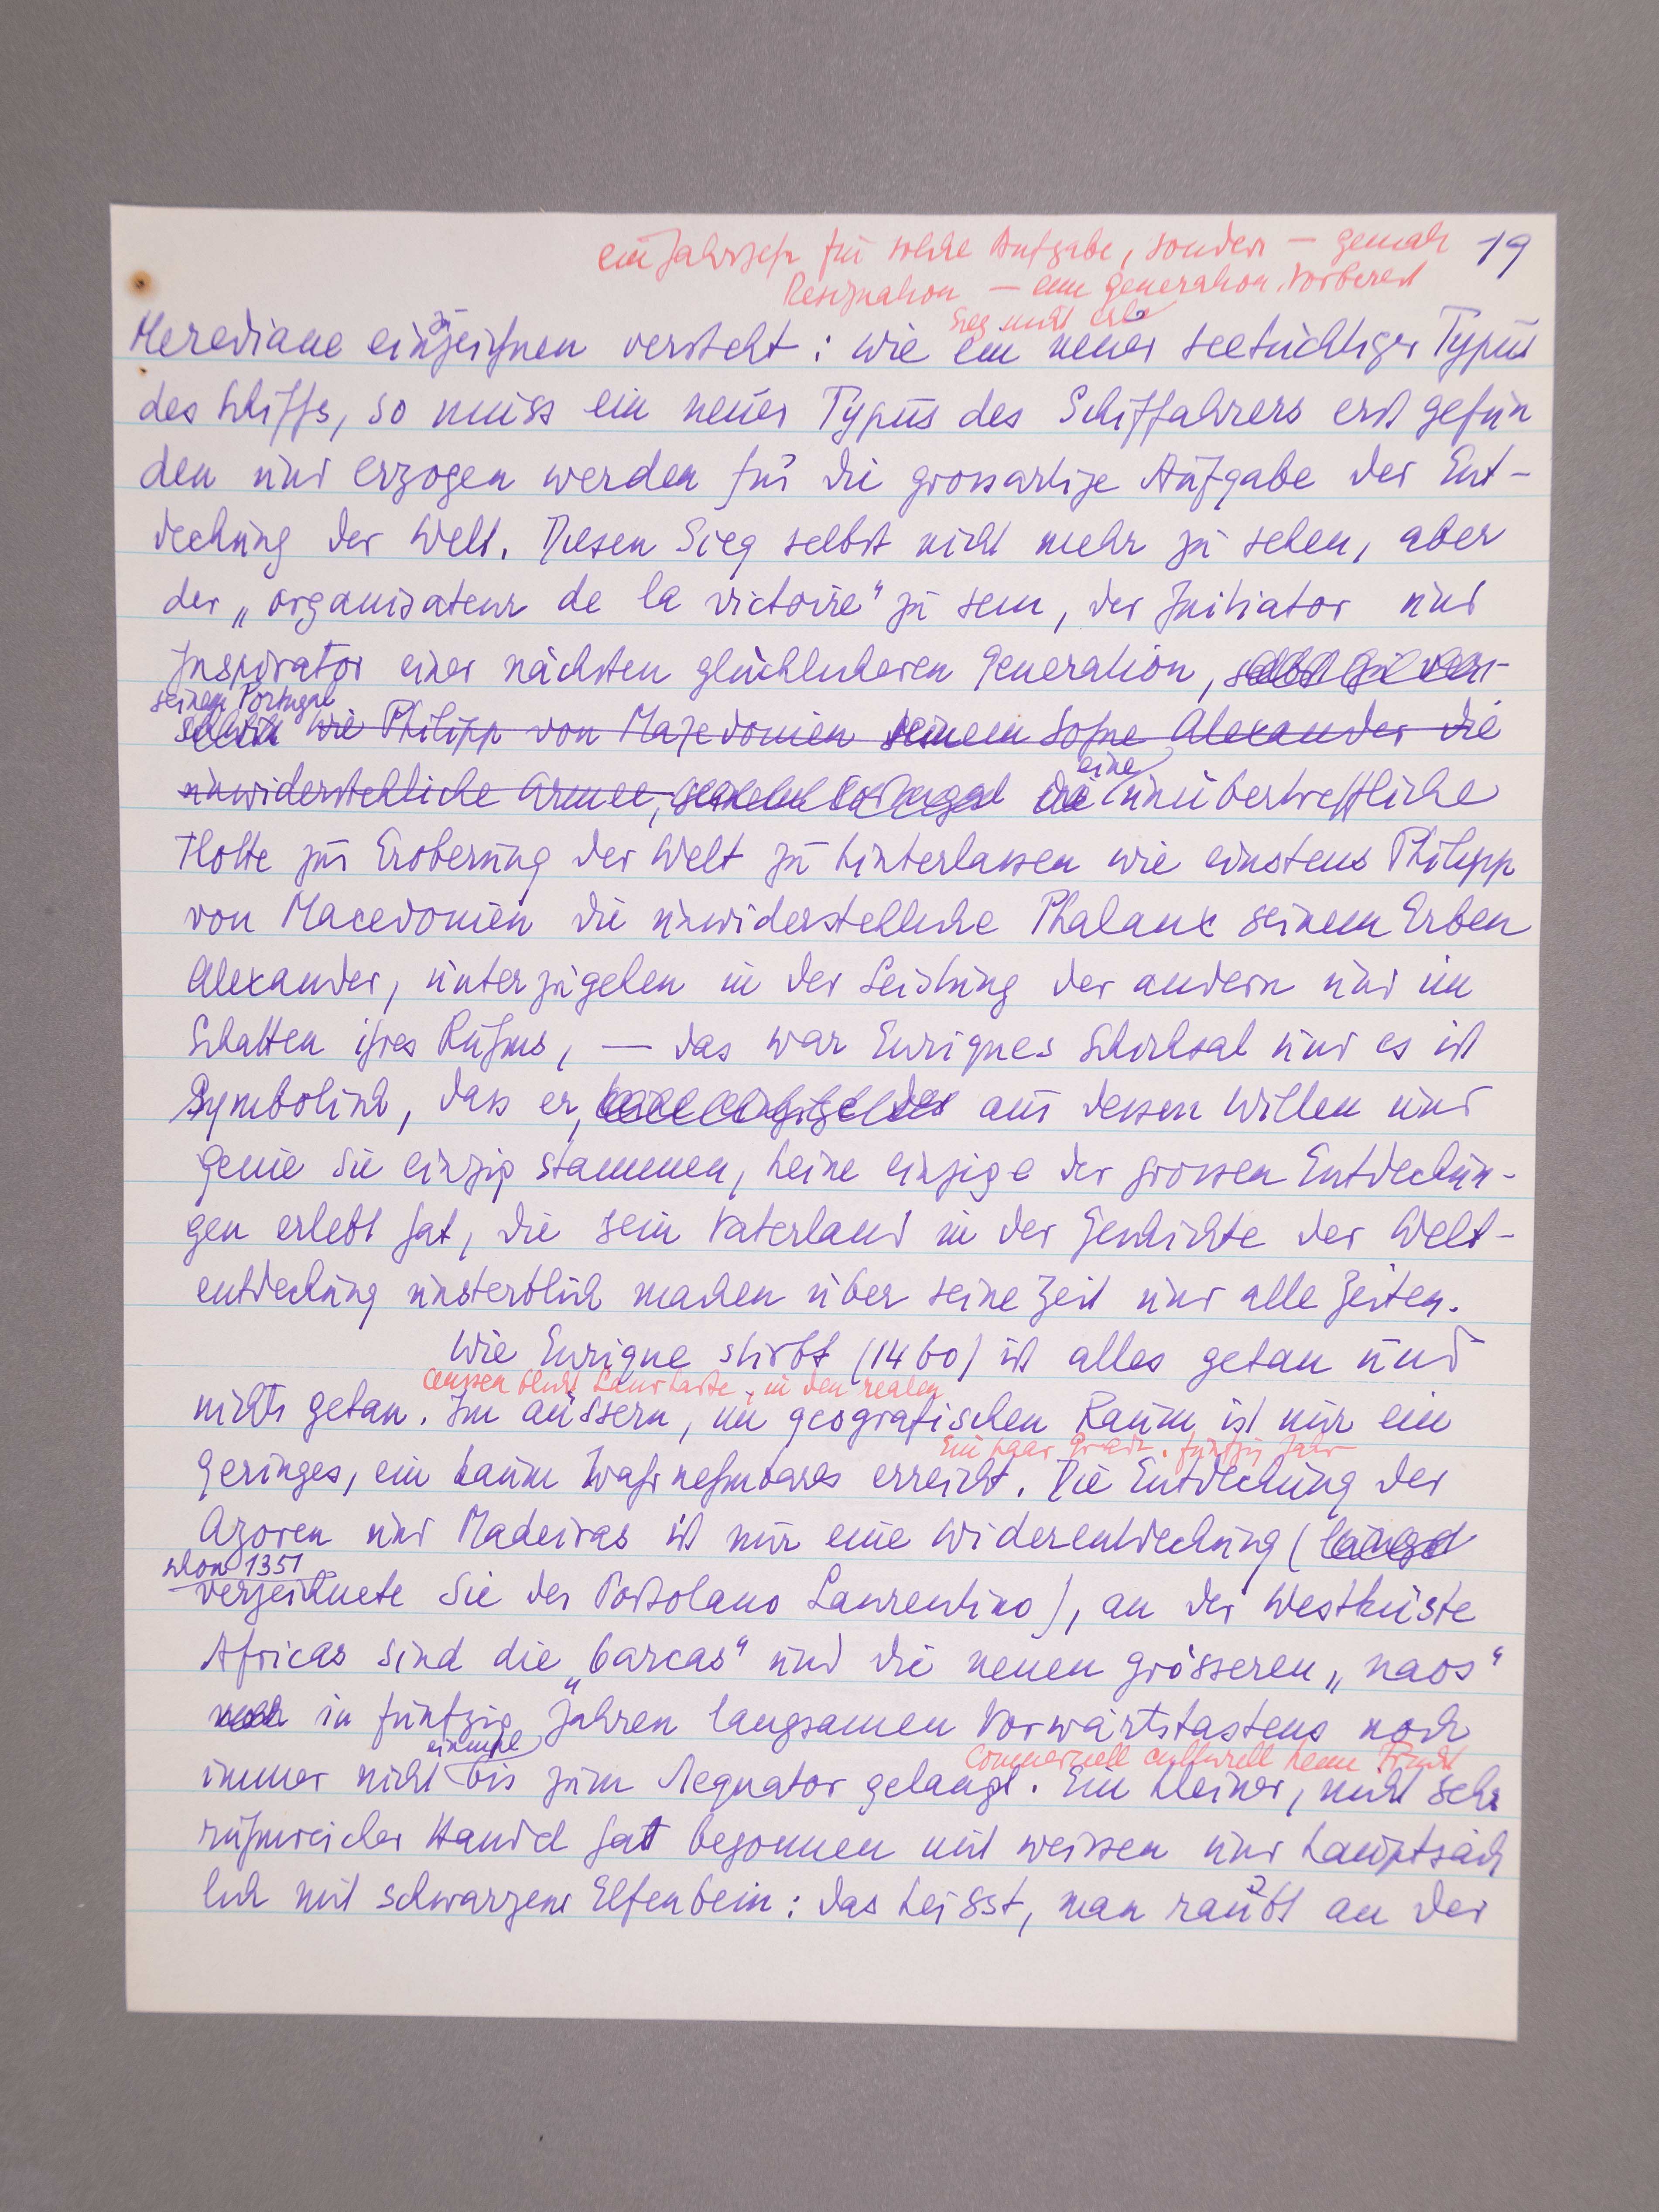 19
ein Jahrzehn für solche Aufgabe, sondern — gemach
Resignation — eine Generation. Vorbereit
Sieg nicht erle
Merediane einzuzeichnen versteht: wie ein neuer seetüchtiger Typus
des Schiffs, so muss ein neuer Typus des Schiffahrers erst gefun
den und erzogen werden für die grossartige Aufgabe der Ent-
deckung der Welt. Diesen Sieg selbst nicht mehr zu sehen, aber
der „organisateur de la victoire" zu sein, der Initiator und
Inspirator einer nächsten glücklicheren Generation,
seinem Portugal
wie Philipp von Mazedonien seinem Sohne Alexander die
unwiderstehliche Armee, seinem Portugal die eine unübertreffliche
Flotte zur Eroberung der Welt zu hinterlassen wie einstens Philipp
von Macedonien die unwiderstehliche Phalanx seinem Erben
Alexander, unterzugehen in der Leistung der andern und im
Schatten ihres Ruhms, — das war Enriques Schicksal und es ist
Symbolisch, dass er, aus dessen Willen und
Genie sie einzig stammen, keine einzige der grossen Entdeckun-
gen erlebt hat, die sein Vaterland in der Geschichte der Welt-
entdeckung unsterblich machen über seine Zeit und alle Zeiten.
Wie Enrique stirbt (1460) ist alles getan und
Landkarte, in den realen
nichts getan. Im äussern, im geografischen Raum ist nur ein
Ein paar Grade. fünfzig Jahr
Geringes, ein kaum Wahrnehmbares erreicht. Die Entdeckung der
Azoren und Madeiras ist nur eine Widerentdeckung (längst
schon 1351
verzeichnete sie der Portolano Laurentino), an der Westküste
Africas sind die „barcas" und die neuen grösseren „naos"
noch in fünfzig Jahren langsamen Vorwärtstastens noch
einmal
immer nicht bis zum Aequator gelangt. Ein kleiner, nicht sehr
commerciell culturell keine Frucht
ruhmreicher Handel hat begonnen mit weissen und hauptsäch
lich mit schwarzem Elfenbein: das heisst, man raubt an der